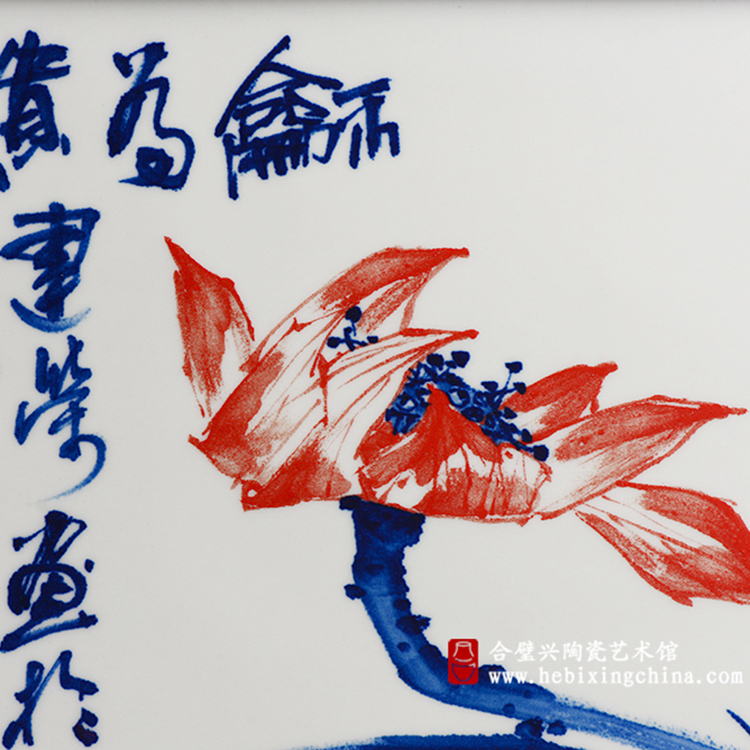 龢為貴
建榮畫於
合璧兴陶瓷艺术馆
www.hebixingchina.com